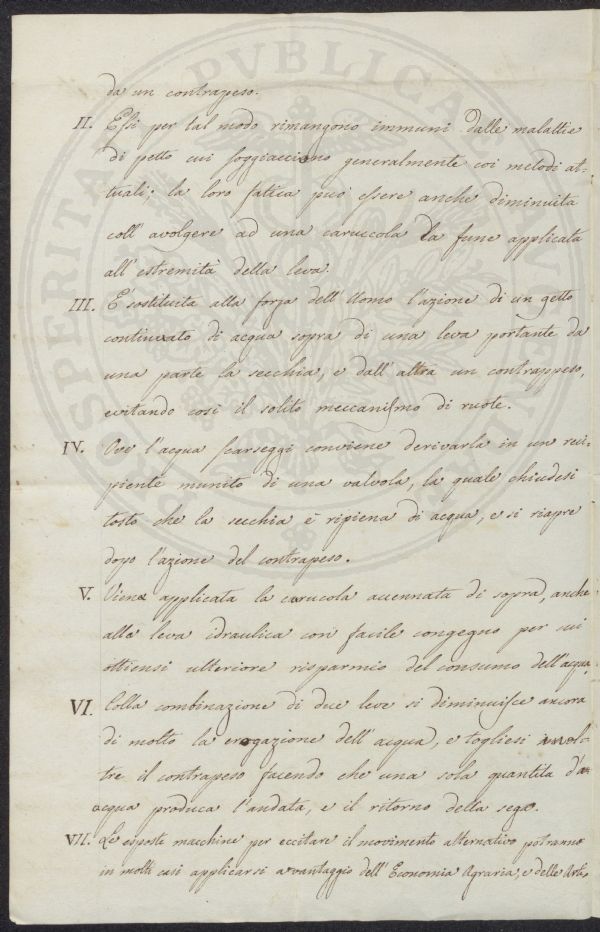 da un contrapeso.
II. Essi per tal modo rimangono immuni dalle malattie
di petto cui soggiacciono generalmente coi metodi at-
tuali; la loro fatica può essere anche diminuita
coll' avolgere ad una caruccola la fune applicata
all' estremità della leva.
III. E' sostituita alla forza dell' Uomo l'azione di un getto
continuato di acqua sopra di una leva portante da
una parte la secchia, e dall' altra un contrappeso,
evitando così il solito meccanismo di ruote.
IV. Ove l'acqua scarseggi conviene derivarla in un reci-
piente munito di una valvola, la quale chiudesi
tosto che la secchia è ripiena di acqua, e si riapre
dopo l'azione del contrapeso.
V. Viene applicata la carucola accennata di sopra, anche
alla leva idraulica con facile congegno per cui
ottiensi ulteriore risparmio del consumo dell'acqua.
VI. Colla combinazione di due leve si diminuisce ancora
di molto la erogazione dell' acqua, e togliesi inol-
tre il contrapeso facendo che una sola quantità d'a-
acqua produca l'andata, e il ritorno della sega.
VII. Le esposte macchine per eccitare il movimento alternativo potranno
in molti casi applicarsi a vantaggio dell' Economia Agraria, e delle Arti,
PROSPERITA PVBLICAE